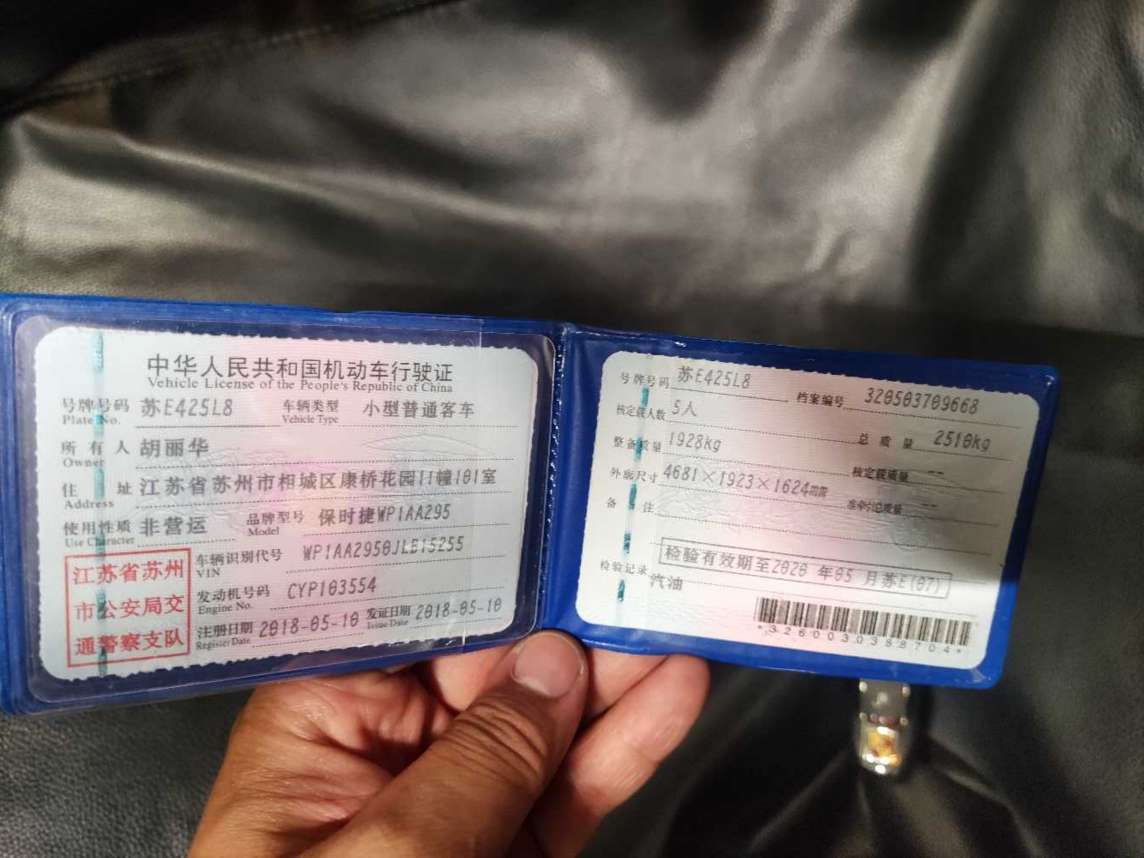 中华人民共和国机动车行驶证
Vehicle License of the People's Republic of China
号牌号码 苏E425L8 车辆类型 小型普通客车
Plate No. Vehicle Type
所有人 胡丽华
Owner
住址 江苏省苏州市相城区康桥花园11幢101室
Address
使用性质 非营运 品牌型号 保时捷WP1AA295
Use Character Model
江苏省苏州
市公安局交
通警察支队
车辆识别代号 WP1AA2950JLB15255
VIN
发动机号码 CYP103554
Engine No.
注册日期 2018-05-10 发证日期 2018-05-10
Register Date Issue Date
号牌号码 苏E425L8 档案编号 320503709668
核定载人数 5人 总质量 2510kg
整备质量 1928kg 核定载质量 --
外廓尺寸 4681×1923×1624mm 准牵引总质量 --
备注
检验有效期至2020年05月苏E(07)
检验记录 汽油
*3260030388704*